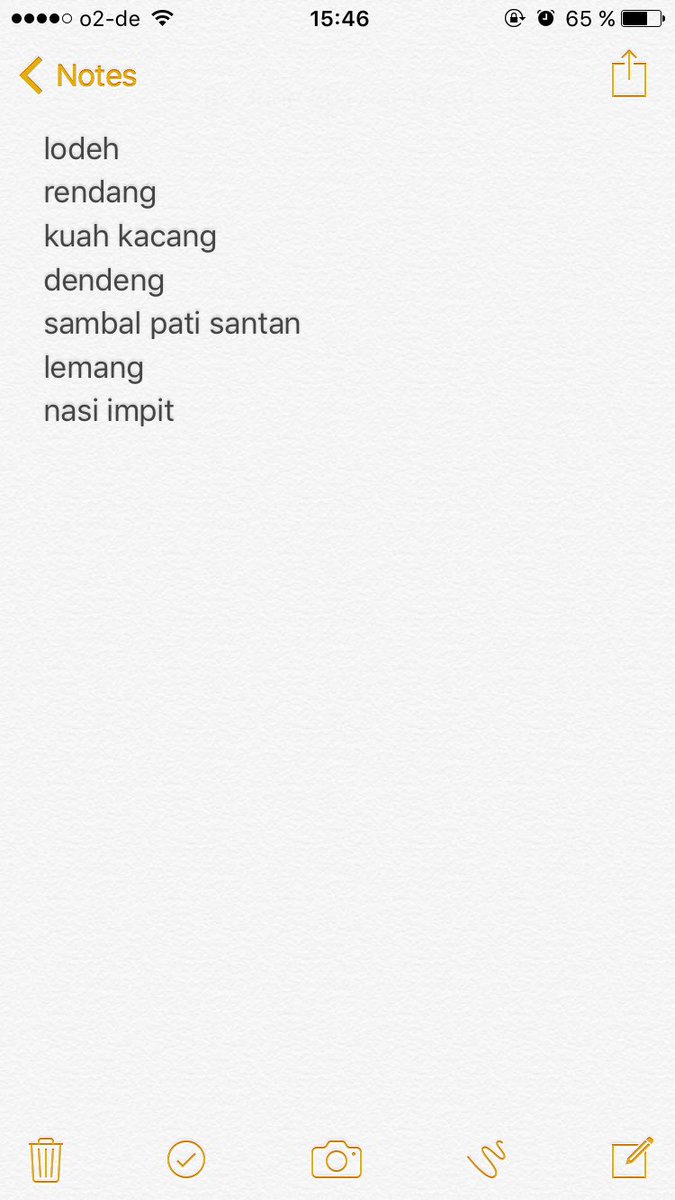 o2-de 15:46 65 %
Notes
lodeh
rendang
kuah kacang
dendeng
sambal pati santan
lemang
nasi impit